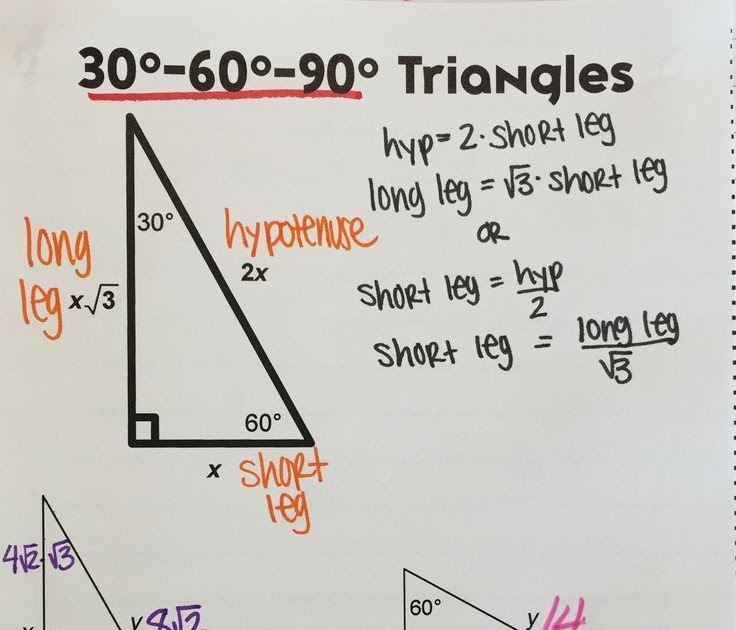 30°-60°-90° Triangles
hyp = 2 · short leg
long leg = √3 · short leg
OR
short leg = hyp/2
short leg = long leg/√3
30°
long
leg x√3
hypotenuse
2x
60°
x short
leg
4√2 · √3
y 8√2
60°
y 14